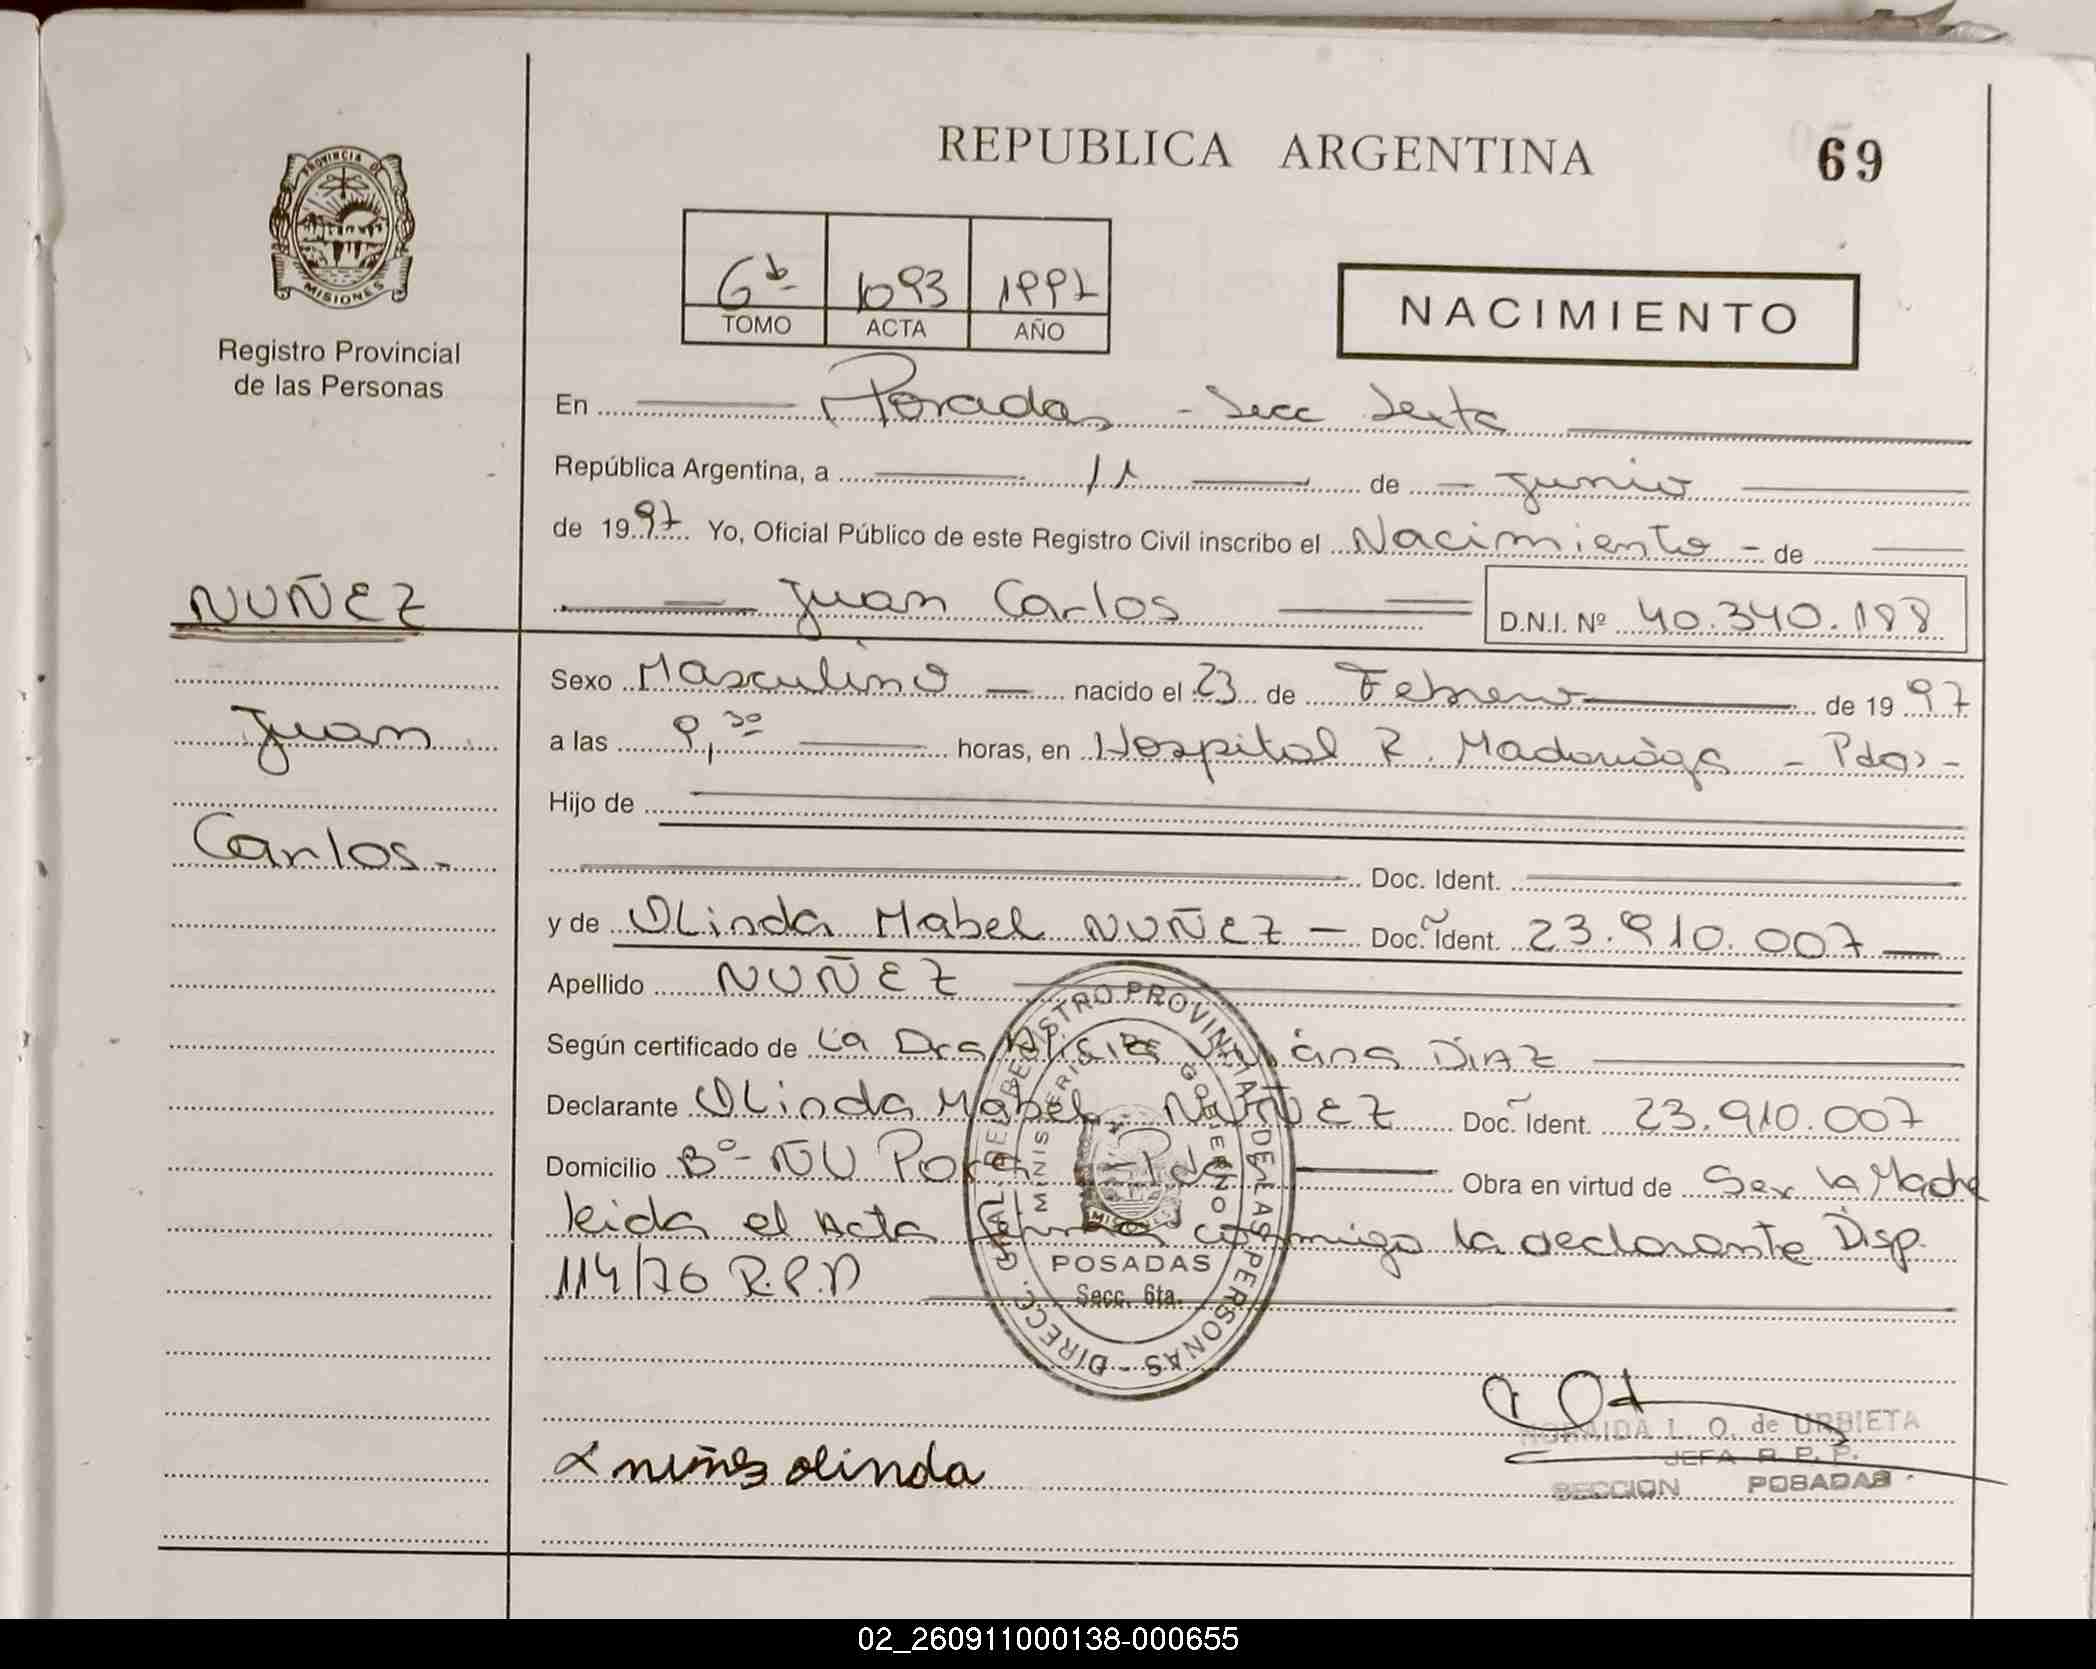 REPUBLICA ARGENTINA
69
PROVINCIA DE
MISIONES
Registro Provincial
de las Personas
6ta 1093 1997
TOMO ACTA AÑO
NACIMIENTO
En Posadas - Secc Sexta
República Argentina, a 11 de - Junio
de 1997 Yo, Oficial Público de este Registro Civil inscribo el Nacimiento - de
NUÑEZ
Juan Carlos
D.N.I. Nº 40.340.188
Sexo Masculino - nacido el 23 de Febrero de 1997
Juan
a las 9,30 horas, en Hospital R. Madariaga - Pdas -
Hijo de
Carlos.-
Doc. Ident.
y de Olinda Mabel NUÑEZ - Doc. Ident. 23.910.007
Apellido NUÑEZ
Según certificado de La Dra DIAZ
Declarante Olinda Mabel NUÑEZ Doc. Ident. 23.910.007
Domicilio Bº- ÑU Porá - Pdas Obra en virtud de Ser la Madre
leida el Acta firma conmigo la declarante Disp.
114/76 R.P.P
DIRECC. GRAL. DEL REGISTRO PROVINCIAL DE LAS PERSONAS -
MINISTERIO DE GOBIERNO
MISIONES
POSADAS
Secc. 6ta.
L. O. de URBIETA
JEFA R. P. P.
SECCION POSADAS
nuñez olinda
02_260911000138-000655